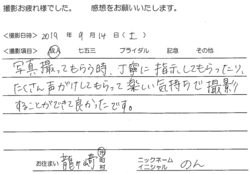 撮影お疲れ様でした。 感想をお願いいたします。
<撮影日時> 2019 年 9 月 14 日 ( 土 )
<撮影項目> 成人 七五三 ブライダル 記念 その他
写真撮ってもらう時、丁寧に指示してもらったり、
たくさん声がけしてもらって楽しい気持ちで撮影
することができて良かったです。
お住まい 龍ヶ崎 市 町 村 ニックネーム イニシャル のん